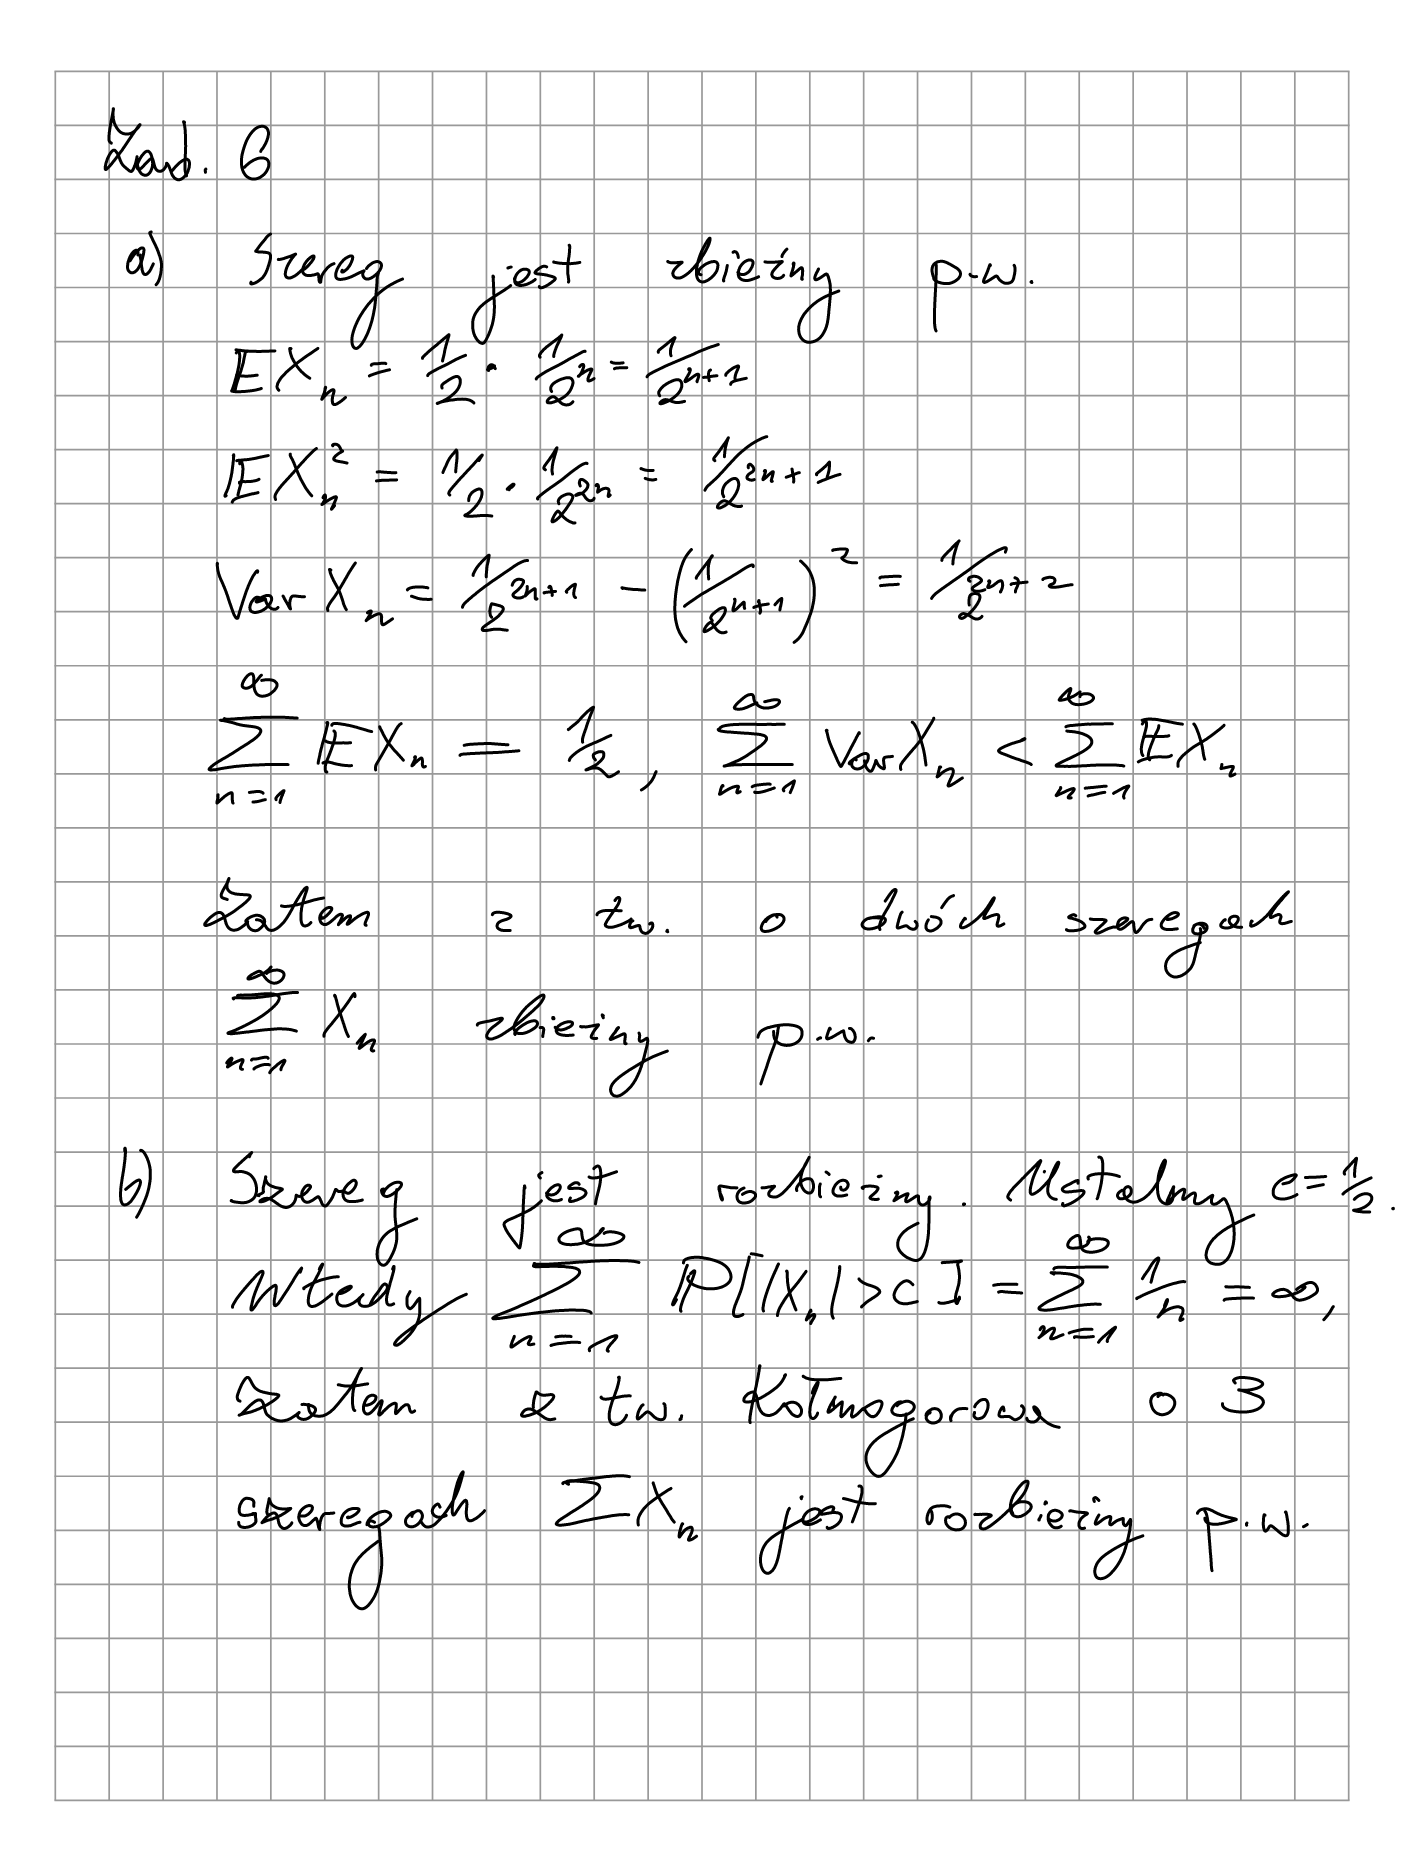 Zad. 6
a) Szereg jest zbieżny p.w.
EX_n = 1/2 · 1/2^n = 1/2^{n+1}
EX_n^2 = 1/2 · 1/2^{2n} = 1/2^{2n+1}
Var X_n = 1/2^{2n+1} - (1/2^{n+1})^2 = 1/2^{2n+2}
∑_{n=1}^∞ EX_n = 1/2, ∑_{n=1}^∞ Var X_n < ∑_{n=1}^∞ EX_n
Zatem z tw. o dwóch szeregach
∑_{n=1}^∞ X_n zbieżny p.w.
b) Szereg jest rozbieżny. Ustalmy c=1/2.
Wtedy ∑_{n=1}^∞ P[|X_n|>c] = ∑_{n=1}^∞ 1/n = ∞,
zatem z tw. Kołmogorowa o 3
szeregach ∑X_n jest rozbieżny p.w.